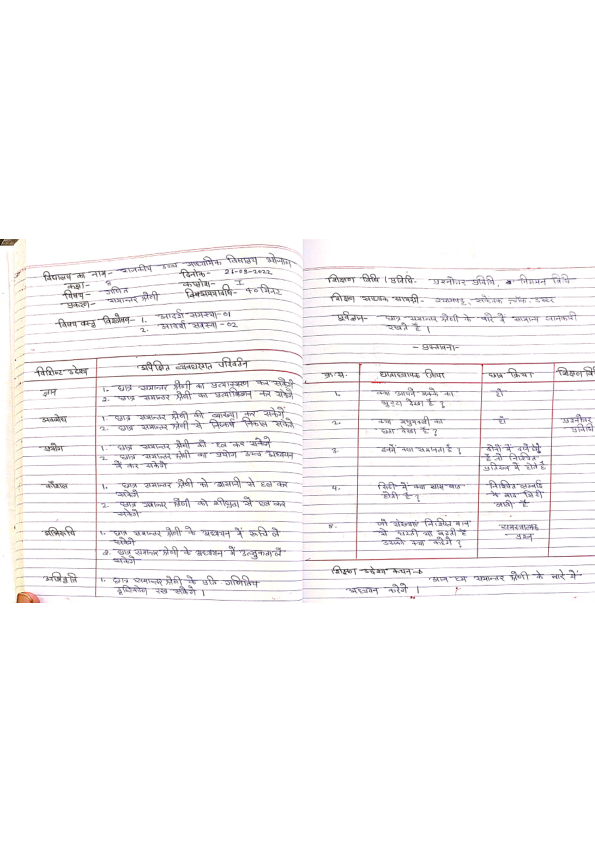 विद्यालय का नाम - राजकीय उच्च माध्यमिक विद्यालय
कक्षा - 8 दिनांक - 26-03-2022
विषय - गणित कालांश - I
प्रकरण - समान्तर श्रेणी 40 मिनट
विषय वस्तु विश्लेषण - 1. आदर्श समस्या - 01
2. आदर्श समस्या - 02
विशिष्ट उद्देश्य अपेक्षित व्यवहारगत परिवर्तन
ज्ञान 1. छात्र समान्तर श्रेणी का प्रत्यास्मरण कर सकेंगे
2. छात्र समान्तर श्रेणी का प्रत्याभिज्ञान कर सकेंगे
अवबोध 1. छात्र समान्तर श्रेणी की व्याख्या कर सकेंगे
2. छात्र समान्तर श्रेणी से निष्कर्ष निकाल सकेंगे
प्रयोग 1. छात्र समान्तर श्रेणी को हल कर सकेंगे
2. छात्र समान्तर श्रेणी का प्रयोग उच्च अध्ययन
में कर सकेंगे
कौशल 1. छात्र समान्तर श्रेणी को आसानी से हल कर
सकेंगे
2. छात्र समान्तर श्रेणी को शीघ्रता से हल कर
सकेंगे
अभिरूचि 1. छात्र समान्तर श्रेणी के अध्ययन में रूचि ले
सकेंगे
2. छात्र समान्तर श्रेणी के अध्ययन में उत्सुकता ले
सकेंगे
अभिवृत्ति 1. छात्र समान्तर श्रेणी के प्रति गणितिय
दृष्टिकोण रख सकेंगे ।
शिक्षण विधि / प्रविधि - प्रश्नोत्तर प्रविधि, निगमन विधि
शिक्षण सहायक सामग्री - श्यामपट्ट, संकेतक, चॉक, डस्टर
पूर्वज्ञान - छात्र समान्तर श्रेणी के बारे में सामान्य जानकारी
रखते है ।
- प्रस्तावना -
क्र.स. छात्राध्यापक क्रिया छात्र क्रिया शिक्षण वि
1. क्या आपने मक्के का
भुट्टा देखा है ? हाँ
2. क्या मधुमक्खी का
छत्ता देखा है ? हाँ प्रश्नोत्तर
प्रविधि
3. इनमें क्या समानता है ? दोनों में
निश्चित
में होते है
4. सिढी में क्या खास बात
होती है ? निश्चित लम्बाई
के बाद सिढी
आती है
5. जो संख्याएं निश्चित मान
से घटती या बढती है
उसको क्या कहेंगे ? समस्यात्मक
प्रश्न
शिक्षण उद्देश्य कथन →
आज हम समान्तर श्रेणी के बारे में
अध्ययन करेंगे ।